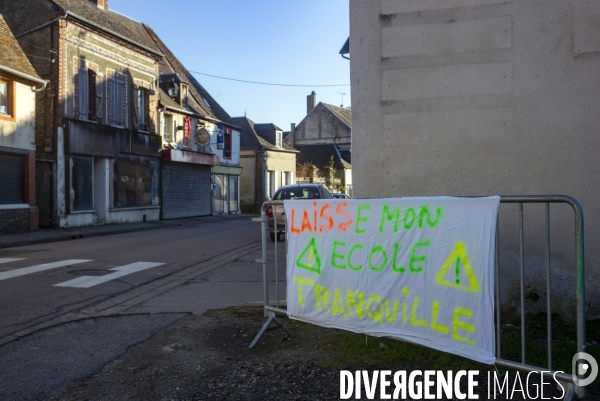 LAISSE MON
ECOLE
TRANQUILLE
DIVERGENCE IMAGES